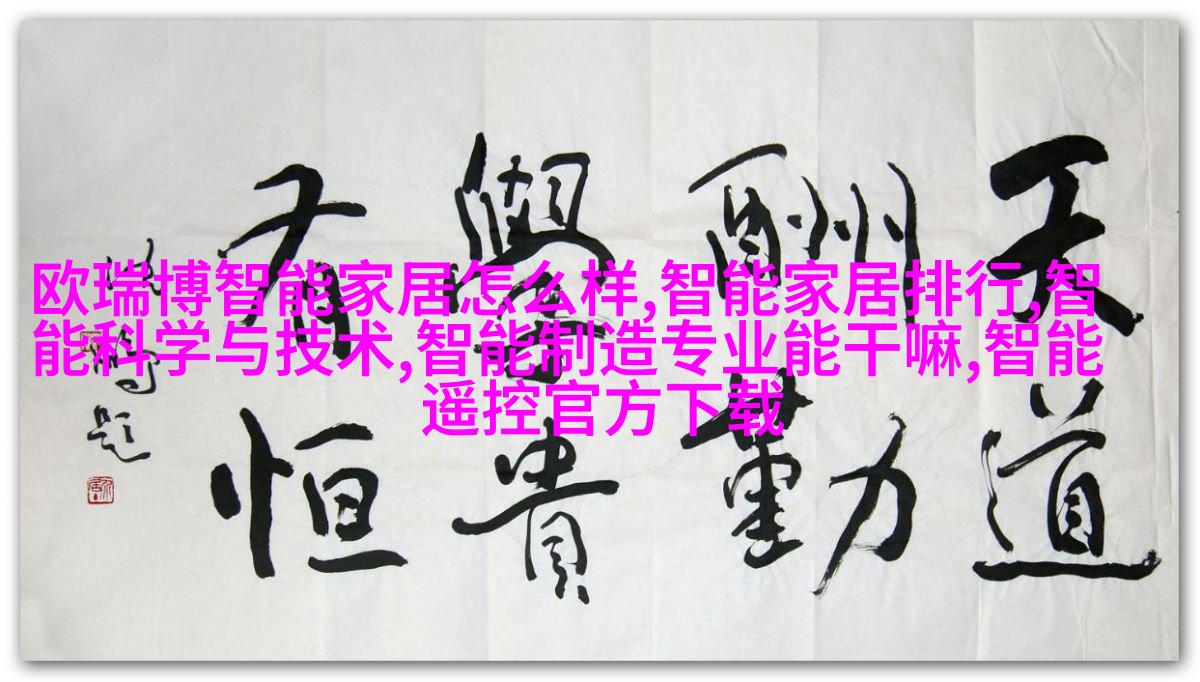 欧瑞博智能家居怎么样,智能家居排行,智
能科学与技术,智能制造专业能干嘛,智能
遥控官方下载
天道
酬勤
學貴
有恒
题